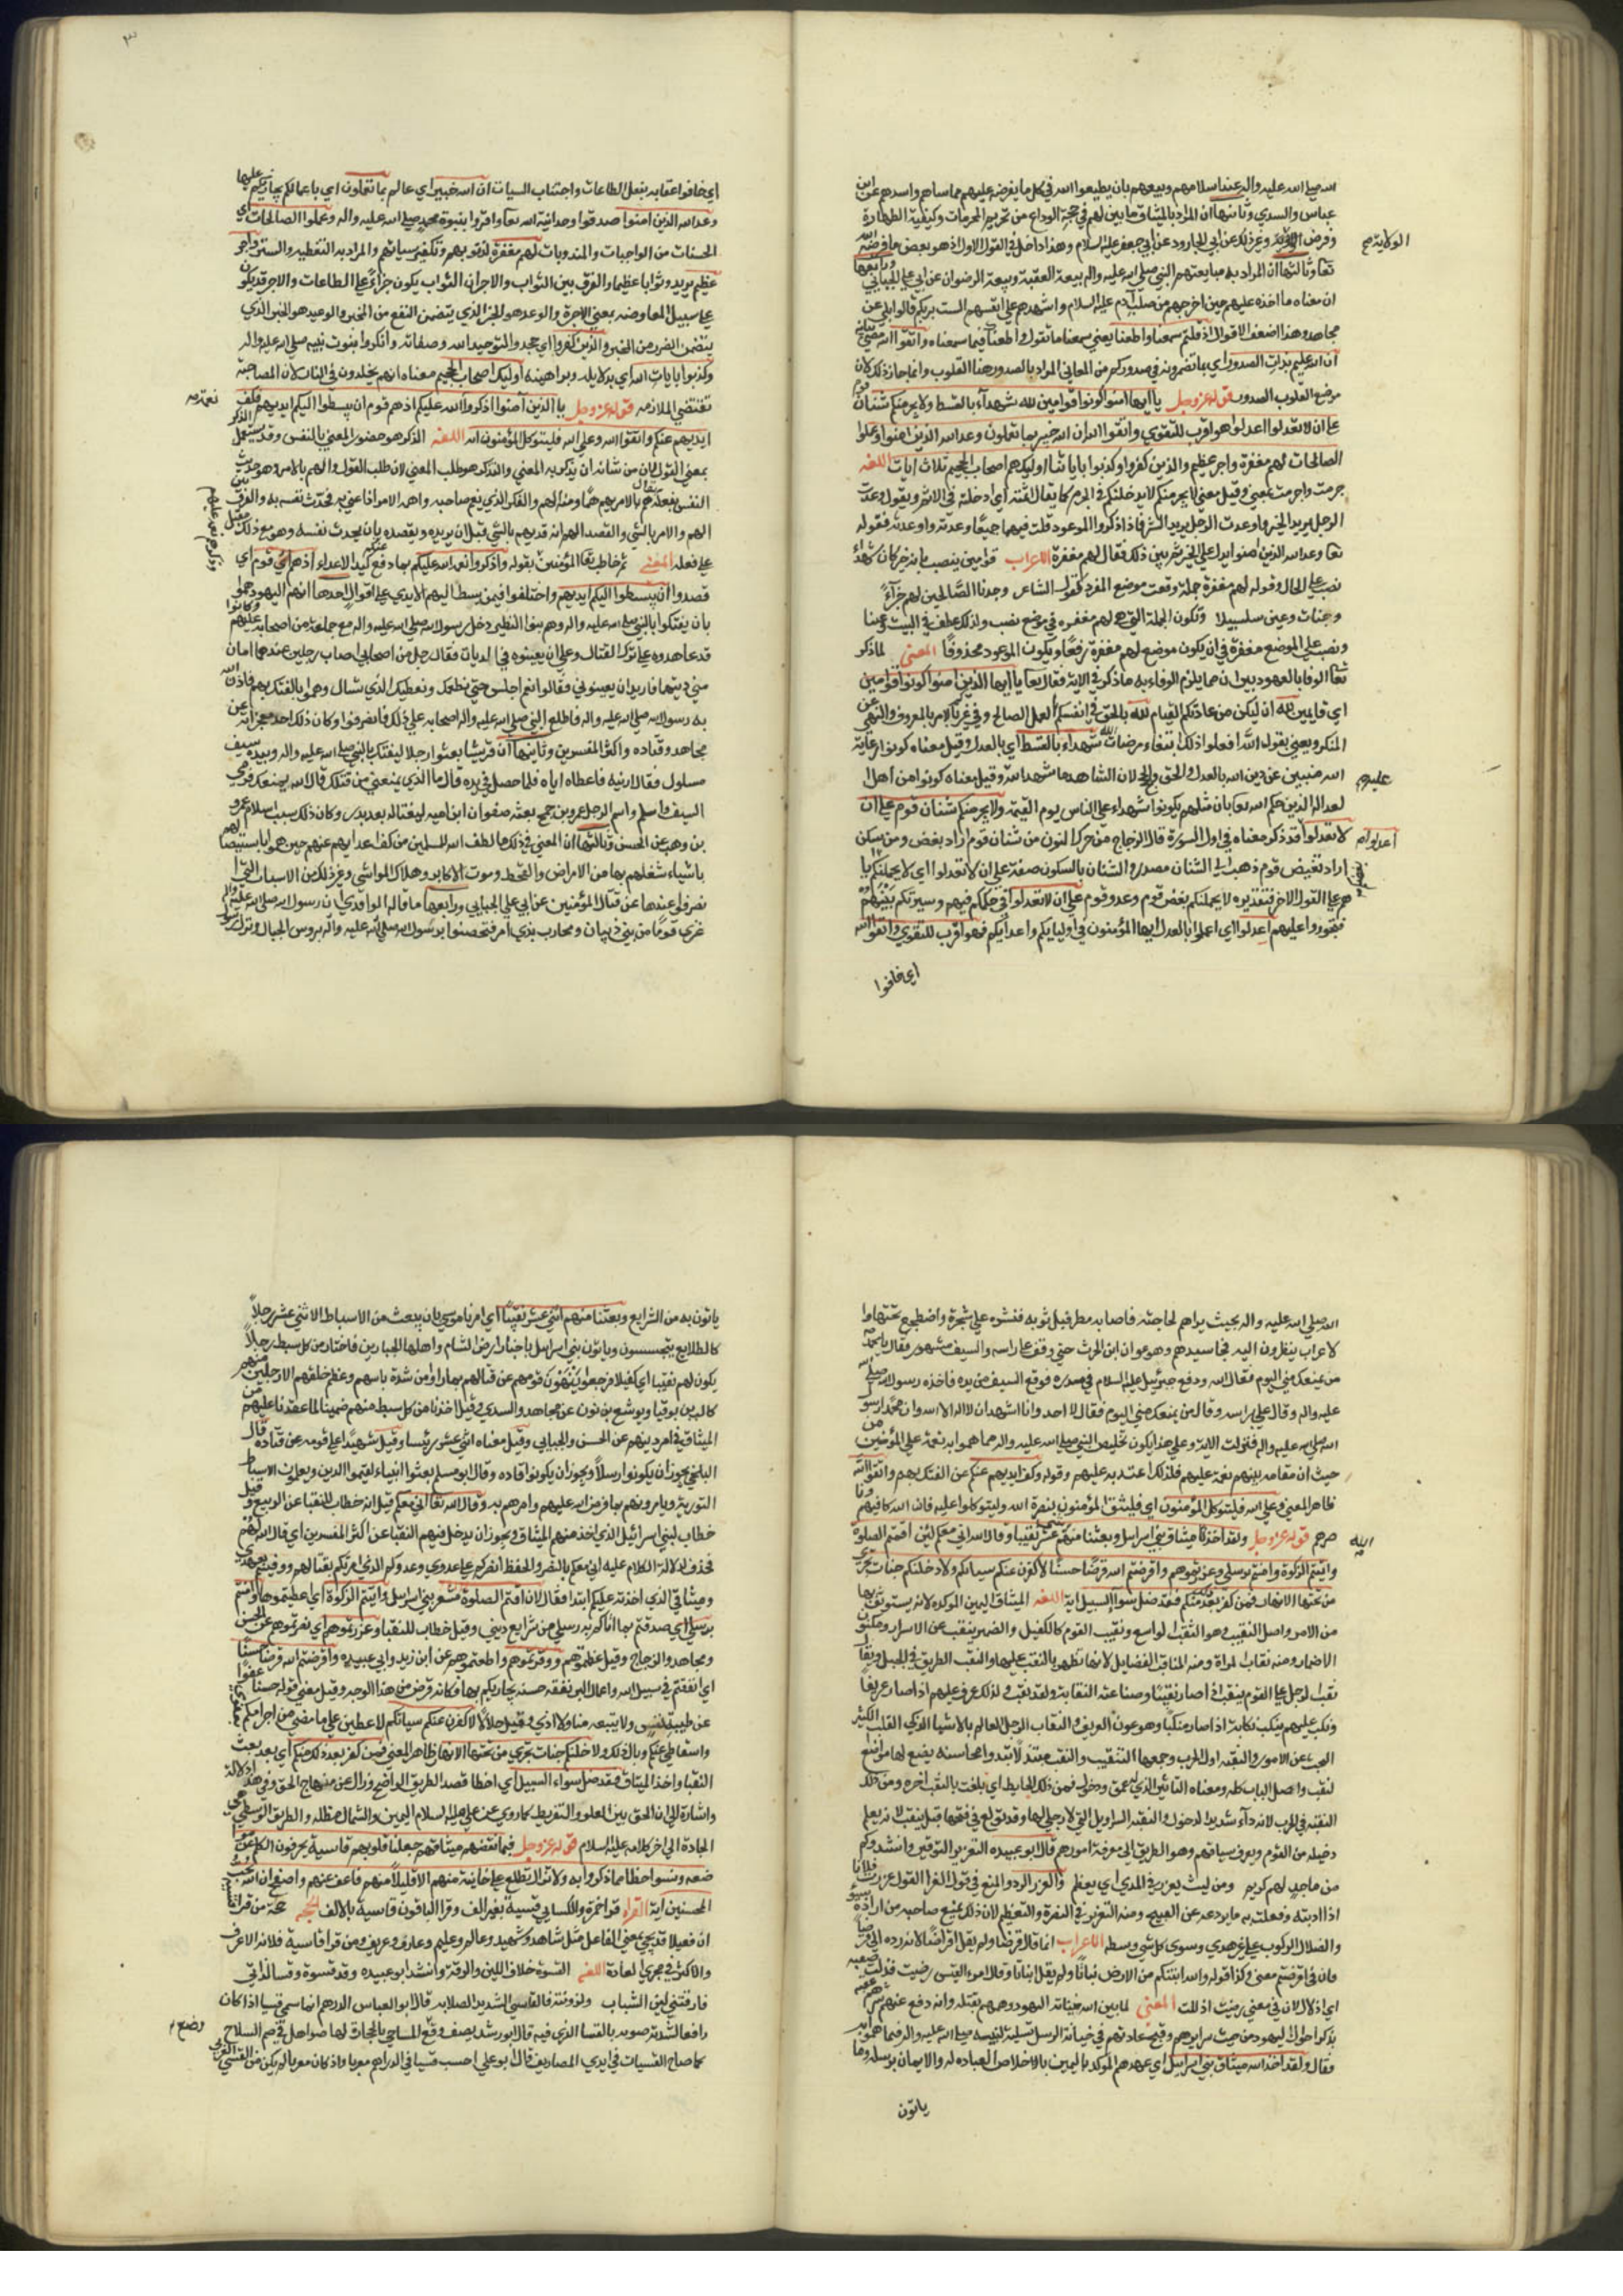 الله صلى الله عليه واله عند اسلامهم وبيعهم بان يطيعوا الله في كل ما يفرضه عليهم مما ساهم واسدهم عن ابن
عباس والسدي وثانيها ان المراد بالميثاق ما بين لهم في حجة الوداع من تحريم المحرمات وكيفية الطهارة
وفرض الولاية وغير ذلك عن ابي الجارود عن ابي جعفر عليه السلام وهذا داخل في القول الاول اذ هو بعض ما فرضه الله
الولاية صح
تعا وثالثها ان المراد به مبايعتهم النبي صلى الله عليه واله بيعة العقبة وبيعة الرضوان عن ابي علي الجبائي ورابعها
ان معناه ما اخذه عليهم حين اخرجهم من صلب ادم عليه السلام واشهدهم على انفسهم الست بربكم قالوا بلى عن
مجاهد وهذا اضعف الاقوال اذ قلتم سمعنا واطعنا يعني سمعنا ما تقول واطعناك فيما سمعناه واتقوا الله
ان الله عليم بذات الصدور اي بما تضمرونه في صدوركم من المعاني المراد بالصدور هنا القلوب وانما جاز ذلك لان
موضع القلوب الصدور قوله عز وجل يا ايها امنوا كونوا قوامين لله شهدآء بالقسط ولا يجرمنكم شنئان قوم
على ان لا تعدلوا اعدلوا هو اقرب للتقوي واتقوا الله ان الله خبير بما تعملون وعد الله الذين امنوا وعملوا
الصالحات لهم مغفرة واجر عظيم والذين كفروا وكذبوا باياتنا اوليك هم اصحاب الجحيم ثلاث ايات اللغه
جرمت واجرمت بمعني وقيل معني لا يجرمنكم لا يدخلنكم في الجرم كما يقال اثمته اي ادخلته في الاثم ويقول وعدت
الرجل يريد الخير واوعدت الرجل يريد الشر فاذا ذكروا الموعود قلت فيهما جميعًا وعدته واوعدته فقوله
تعا وعد الله الذين امنوا يدل على الخير ثم بين ذلك فقال لهم مغفرة الاعراب قوامين ينصب بانه خبر كان شهداء
نصب على الحال وقوله لهم مغفرة جملة وقعت موضع المفرد كقول الشاعر وجدنا الصّالحين لهم جزآءً
وجنات وعين سلسبيلا وتكون الجملة التي هي لهم مغفره في موضع نصب ولذلك عطف في البيت وعينا
ونصب على الموضع مغفرة في ان يكون موضع لهم مغفرة رفعًا ويكون الموعود محذوفًا المعني لما ذكر
تعا الوفا بالعهود بين ان مما يلزم الوفاء به ما ذكر في الاية فقال تعا يا ايها الذين امنوا كونوا قوامين
اي قايمين لله ان ليكن من عادتكم القيام لله بالحق في انفسكم بالعمل الصالح وفي غيركم بالامر بالمعروف والنهي عن
المنكر ويعني بقوله لله افعلوا ذلك ابتغاء مرضات الله شهداء بالقسط اي بالعدل وقيل معناه كونوا دعاية
الله مبينين عن دين الله بالعدل والحق والحجج لان الشاهد ما شهد لله وقيل معناه كونوا من اهل
عليهم
لعدالة الذين حكم الله تعا بان مثلهم يكونوا شهداء على الناس يوم القيمة ولا يجرمنكم شنئان قوم على ان
لا تعدلوا قد ذكر معناه في اول السورة قال الزجاج من حرك النون من شنئان قوم اراد بغض ومن سكن
اعدلوا صح
اراد تغيض قوم ذهب الى الشنئان مصدر والشنان بالسكون صفة على ان لا تعدلوا اي لا يحملنكم
على القول الاخر فتقديره لا يحملنكم بغض قوم وعدو قوم على ان لا تعدلوا في حكمكم فيهم وسيرتكم بينهم
فتجوروا عليهم اعدلوا اي اعملوا بالعدل ايها المؤمنون في اوليايكم واعدايكم فهو اقرب للتقوي واتقوا الله
اي خافوا
٣
اي خافوا عقابه بفعل الطاعات واجتناب السيات ان الله خبير اي عالم بما تعملون اي باعمالكم يجازيكم عليها
وعد الله الذين امنوا صدقوا وحدانية الله تعا واقروا بنبوة محمد صلى الله عليه واله وعملوا الصالحات اي
الحسنات من الواجبات والمندوبات لهم مغفرة لذنوبهم وتكفير سيئاتهم والمراد به التغطيه والستر واجر
عظيم يريد وثوابا عظيما والفرق بين الثواب والاجر ان الثواب يكون جزاءً على الطاعات والاجر قد يكون
على سبيل المعاوضه بمعني الاجرة والوعد هو الخبر الذي يتضمن النفع من المخبر والوعيد هو الخبر الذي
يتضمن الضرر من المخبر والذين كفروا اي جحدوا لتوحيد الله وصفاته وانكروا بنبوت نبيه صلى الله عليه واله
وكذبوا بايات الله اي بدلايله وبراهينه اوليك اصحاب الجحيم معناه انهم يخلدون في النار لان المصاحبة
تقتضي الملازمه قوله عز وجل يا ايها الذين امنوا اذكروا الله عليكم اذ هم قوم ان يبسطوا اليكم ايديهم فكف
نعمة صح
ايديهم عنكم واتقوا الله وعلى الله فليتوكل المؤمنون اية اللغه الذكر هو حضور المعني بالنفس وقد يستعمل
بمعني القول لان من شانه ان يذكر به المعني والتذكر هو طلب المعني لان طلب القول والهم بالامر وهو حديث
النفس بفعله يقال هم بالامر يهم همًا ومنه الهم والفكر الذي يغم صاحبه واهمه الامر اذا عني به فحدث نفسه به والفرق بين
الهم بالشي والقصد اليه انه قد يهم بالشي قبل ان يريده ويقصده بان يحدث نفسه وهو مع ذلك مقبل
على فعله المعني ثم خاطب تعا المؤمنين بقوله واذكروا نعمة الله عليكم بما دفع عنكم كيد الاعداء اذ هم قوم اي
قصدوا ان يبسطوا اليكم ايديهم واختلفوا فيمن بسط اليهم الايدي على اقوال احدها انهم اليهود هموا
بان يفتكوا بالنبي صلى الله عليه واله وهم بنوا النظير دخل رسول الله صلى الله عليه واله مع جماعة من اصحابه عليهم وكانوا
قد عاهدوه على ترك القتال وعلى ان يعينوه في الديات فقال رجل من اصحابي اصاب رجلين عندهما امان
مني ديتهما فاريد ان يعينوني فقالوا نعم اجلس حتى نطعمك ونعطيك الذي تسال وهموا بالفتك بهم فاذن الله
به رسول الله صلى الله عليه واله فاطلع النبي صلى الله عليه واله اصحابه على ذلك فانصرفوا وكان ذلك احد معجزاته عن
مجاهد وقتاده واكثر المفسرين وثانيها ان قريشا بعثوا رجلا ليفتك بالنبي صلى الله عليه واله وبيده سيف
مسلول فقال ارنيه فاعطاه اياه فلما حصل في يده قال ما الذي يمنعني من قتلك قال الله يمنعك فرمي
السيف واسلم واسم الرجل عمرو بن جمح بعثه صفوان ابن اميه ليغتاله بعد بدر وكان ذلك سبب اسلام عمرو
بن وهب عن الحسن وثالثها ان المعني في ذلك ما لطف الله للمسلمين من كف اعدايهم عنهم حين هموا باستيصالهم
باشياء شغلهم بها من الامراض والقحط وموت الاكابر وهلاك المواشي وغير ذلك من الاسباب التي
نصرفوا عندها عن قتال المؤمنين عن ابي علي الجبايي ورابعها ما قاله الواقدي ان رسول الله صلى الله عليه واله
غزى قومًا من بني ذبيان ومحارب بذي امر فتحصنوا برسول الله صلى الله عليه واله بروس الجبال ونزل رسول
الله صلى الله عليه واله بحيث يراهم لحاجته فاصابه مطر فبل ثوبه فنشره على شجرة واضطجع تحتها وا
لاعراب ينظرون اليه فجا سيدهم وهو عوان ابن الحرث حتى وقف على راسه والسيف مشهور فقال يا محمد
من يمنعك مني اليوم فقال الله ودفع جبرئيل عليه السلام في صدره فوقع السيف من يده فاخذه رسول الله صلى الله
عليه واله وقال على راسه وقال من يمنعك مني اليوم فقال لا احد وانا اشهد ان لا اله الا الله وان محمدًا رسول
الله صلى الله عليه واله فنزلت الاية وعلى هذا يكون تخليص النبي صلى الله عليه واله مما هموا به نعمة على المؤمنين من
حيث ان مقامه بينهم نعمة عليهم فلذلك اعتد به عليهم وقوله وكف ايديهم عنكم عن الفتك بهم واتقوا الله
ظاهر المعني وعلى الله فليتوكل المؤمنون اي فليثق المؤمنون بنصرة الله وليتوكلوا عليه فان الله كافيهم ونا
صرهم قوله عز وجل ولقد اخذ ميثاق بني اسرايل وبعثنا منهم اثني عشر نقيبا وقال الله اني معكم لئن اقمتم الصلوة
الله
واتيتم الزكوة وامنتم برسلي وعزرتموهم واقرضتم الله قرضًا حسنًا لاكفرن عنكم سياتكم ولادخلنكم جنات تجري
من تحتها الانهار فمن كفر بعد ذلك منكم فقد ضل سوآ السبيل اية اللغه الميثاق اليمين الموكدة لانه يستوثق بها
من الامر واصل النقيب هو النقب الواسع ونقيب القوم كالكفيل والضمين ينقب عن الاسرار ومكنون
الاضمار ومنه نقاب المراة ومنه المناقب الفضايل لانها تظهر بالنقب عليها والنقب الطريق في الجبل ويقال
نقب الرجل على القوم ينقب اذا صار نقيبًا وصناعته النقابة ولقد نقب وكذلك عرف عليهم اذا صار عريفًا
ونكب عليهم ينكب نكابة اذا صار منكبا وهو عون العريف والنقاب الرجل العالم بالاشيا الذكي القلب الكثير
البحث عن الامور والنقبه اول الجرب وجمعها
لنقب واصل الباب كله ومعناه التاثير الذي له عمق ودخول فمن ذلك نقبت الحايط اي بلغت بالنقب اخره ومن ذلك
النقبة في الجرب لانه دآء شديد الدخول والنقبه السراويل التي لا رجل لها وقد توسع في فتحها قيل ينقب لانه يعلم
دخيله من القوم ويعرف سياقهم وهو الطريق الى معرفة امورهم قال ابو عبيده التعزير التوقير وانشد وكم
من ماجدٍ لهم كريم ومن ليث يعزر في الندي اي يعظم والعزر الرد والمنع في قول الفرا القول عزرت فلانا
اذا ادبته وفعلت به ما يردعه عن القبيح ومنه التعزير في النصرة والتعظيم لان ذلك يمنع صاحبه من اراده
والضلال الركوب على غير هدي وسوى كل شي وسطه الاعراب انما قال قرضا ولم يقل اقراضًا لانه رده الى قرضا
فان في اقرضتم معنى وكذا قوله والله انبتكم من الارض نباتًا ولم يقل انباتا وقال امرء القيس رضيت فذلت صعبه
اي اذلال لان في معني رضيت اذللت المعني لما بين الله خيانة اليهود وهمهم بقتله وانه دفع عنهم شرهم
بذكر احوال اليهود من خبث سرايرهم وقبح عادتهم في خيانة الرسل تسلية لنبيه صلى الله عليه واله فيما هموا به
فقال ولقد اخذ الله ميثاق بني اسرايل اي عهدهم الموكد باليمين بالاخلاص العباده له والايمان برسله وما
ياتون
ياتون به من الشرايع وبعثنا منهم اثني عشر نقيبًا اي امرنا موسي بان يبعث من الاسباط الاثني عشر رجلاً
كالطلايع يتجسسون وياتون بني اسرايل باخبار ارض الشام واهلها الجبارين فاختار من كل سبط رجلاً
يكون لهم نقيبا اي كفيلا فرجعوا ينهون قومهم عن قتالهم بما راوا من شدة باسهم وعظم خلقهم الا رجلين منهم
كالب بن يوقيا ويوشع بن نون عن مجاهد والسدي وقيل اخذنا من كل سبط منهم ضمينا لما عقدنا عليهم من
الميثاق في امر دينهم عن الحسن والجبايي وقيل معناه اثني عشر رئيسا وقيل شهيدًا على قومه عن قتادة قال
البلخي يجوز ان يكونوا رسلاً ويجوز ان يكونوا قاده وقال ابو مسلم بعثوا انبياء ليقيموا الدين ويعلموا الاسباط
التورية ويامرونهم بما فرض الله عليهم وامرهم به وقال الله تعا اني معكم قيل انه خطاب للنقبا عن الربيع وقيل
خطاب لبني اسرائيل الذي اخذ منهم الميثاق ويجوز ان يدخل فيهم النقبا عن اكثر المفسرين اي قال الله لهم
فحذف لدلالة الكلام عليه اني معكم بالنصر والحفظ انصركم على عدوي وعدوكم الذي امرتكم بقتالهم ووفيتم بعهدي
وميثاقي الذي اخذته عليكم ابتدا فقال لان اقمتم الصلوة معشر بني اسرايل واتيتم الزكوة اي اعطيتموها وامنتم
برسلي اي صدقتم بما اتاكم به رسلي من شرايع ديني وقيل خطاب للنقبا وعزرتموهم اي نصرتموهم عن الحسن
ومجاهد والزجاج وقيل عظمتموهم ووقرتموهم واطعتموهم عن ابن زيد وابي عبيده واقرضتم الله قرضا حسنا
اي انفقتم في سبيل الله واعمال البر نفقه حسنه يجازيكم بها فكانه قرض من هذا الوجه وقيل معني قوله حسنا عفوا
عن طيبة نفس ولا يتبعه منا ولا اذي وقيل حلالا لاكفرن عنكم سياتكم لاعطين على ما مضي من اجرامكم
واسقاطي عنكم وبال ذلك ولادخلنكم جنات تجري من تحتها الانهار ظاهر المعني فمن كفر بعد ذلك منكم اي بعد بعث
النقبا واخذ الميثاق فقد ضل سواء السبيل اي اخطا قصد الطريق الواضح وزال عن منهاج الحق وفي هذا دلالة
واشارة الى ان الحق بين الغلو والتفريط كما روي عن علي عليه السلام اليمين والشمال مضلة والطريق الوسطي هي
الجادة الى اخر كلامه عليه السلام قوله عز وجل فبما نقضهم ميثاقهم جعلنا قلوبهم قاسية يحرفون الكلم عن موا
ضعه ونسوا حظا مما ذكروا به ولا تزال تطلع على خاينة منهم الا قليلاً منهم فاعف عنهم واصفح ان الله يحب
المحسنين اية القراه قرا حمزة والكسايي قسية بغير الف وقرا الباقون قاسية بالالف الحجه حجة من قرا قسية
ان فعيلا قد يجي بمعني الفاعل مثل شاهد وشهيد وعالم وعليم وعارف وعريف ومن قرا قاسية فلانه الاعرف
والاكثر في مجري العادة اللغه القسوة خلاف اللين والرقة وانشد ابو عبيده وقد قسوت وقسا لداتي
فارقتني لين الشباب ولزوبته فالقاسي الشديد الصلابه قال ابو العباس الدرهم انما سمي قسيا اذا كان
رافعا لشدة صوته بالقسا الذي فيه قال ابو زبيد يصف وقع المساحي بالحجارة لها صواهل في صم السلاح
كما صاح القسيات في ايدي المصاريف قال ابو علي احسب قسيا في الدراهم معربا واذ كان معربا لم يكن من القسي